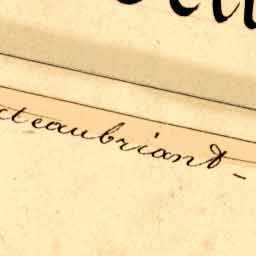 cteaubriant -